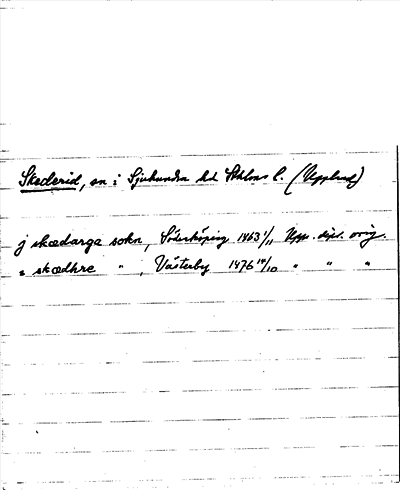 Skederid, sn i Sjuhundra hd Sthlms l. (Uppland)
j skædarga sokn, Söderköping 1463 1/11 Upps. dipl. orig.
" skædhre " , Västerby 1476 14/10 " " "